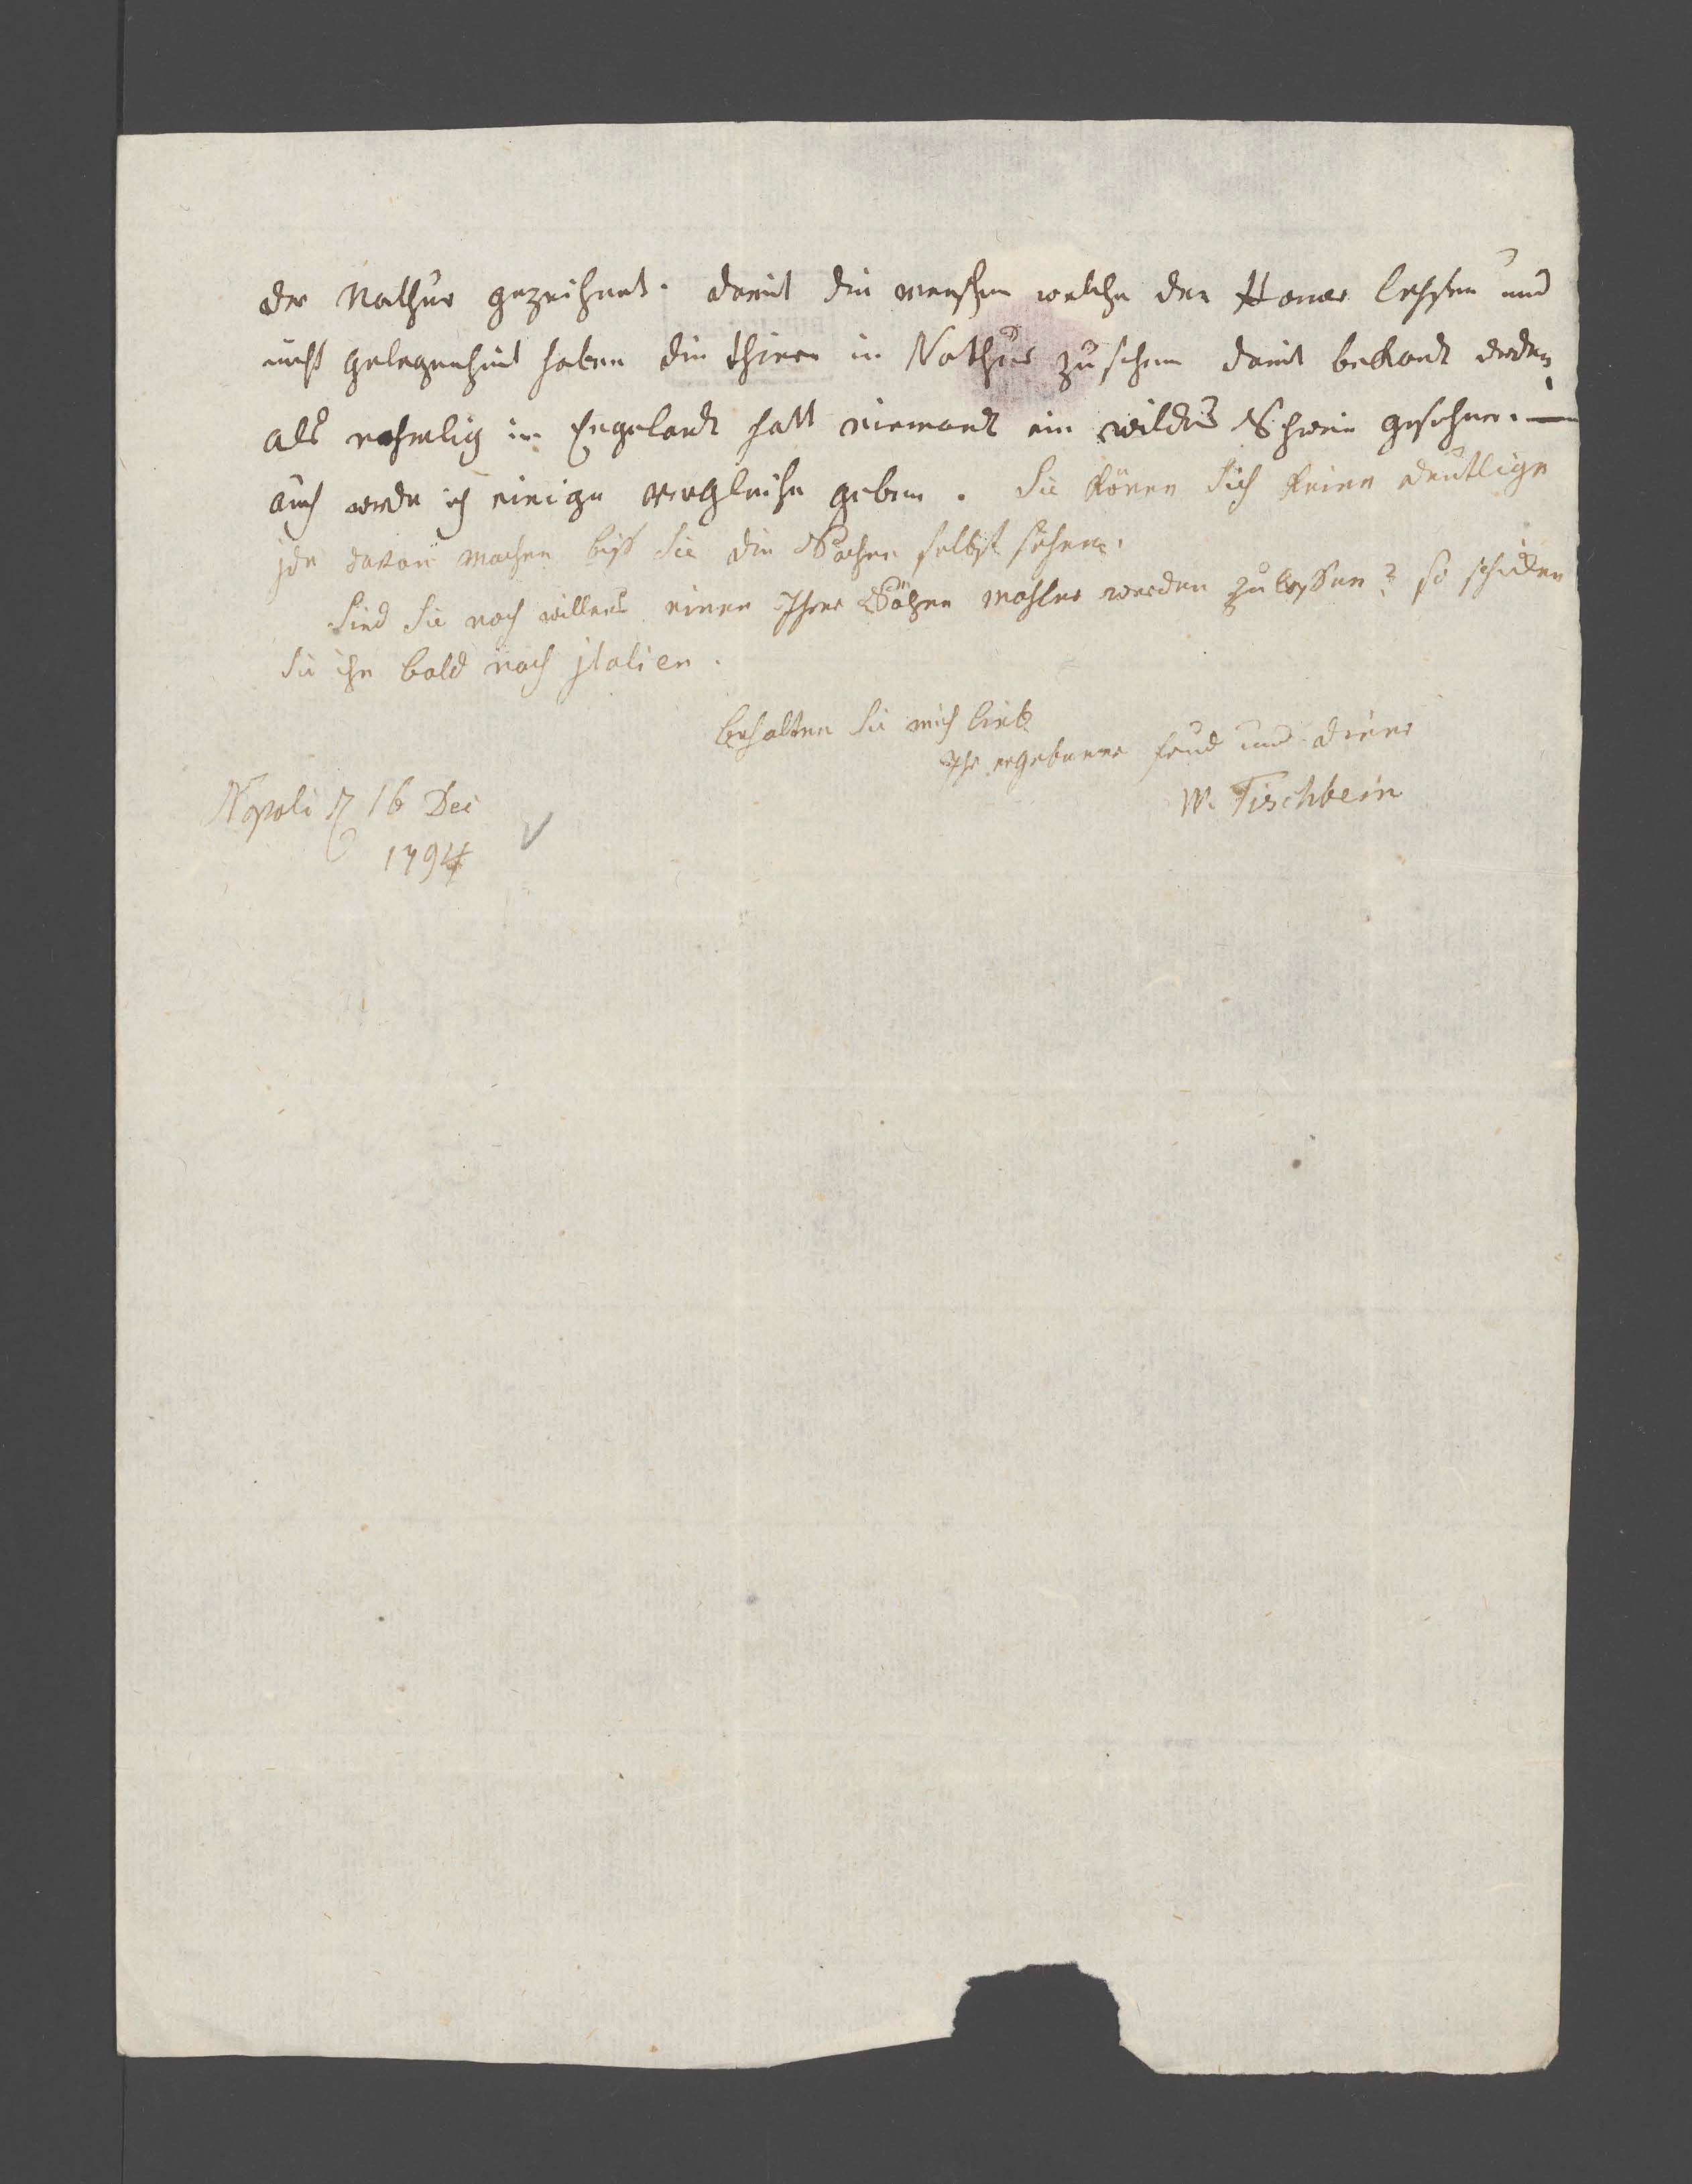 der Nathur gezeichnet. damit die menschen welche den Homer lessen und
nicht gelegenheit haben die thiere in Nathur zu sehen damit bekandt werden,
als nehmlig in Engelandt hatt niemandt ein wildes Schwein gesehen. —
auch werde ich einige vergleiche geben. Sie könen Sich keine deutlige
jde davon machen biß Sie die Sachen selbst sehen.
Sind Sie noch willens einen Ihrer Söhne mahler werden zu lassen? so schicken
Sie ihn bald nach jtalien.
behalten Sie mich lieb
Ihr ergebener freud und diener
W. Tischbein
Napoli d 16 Dec
1794